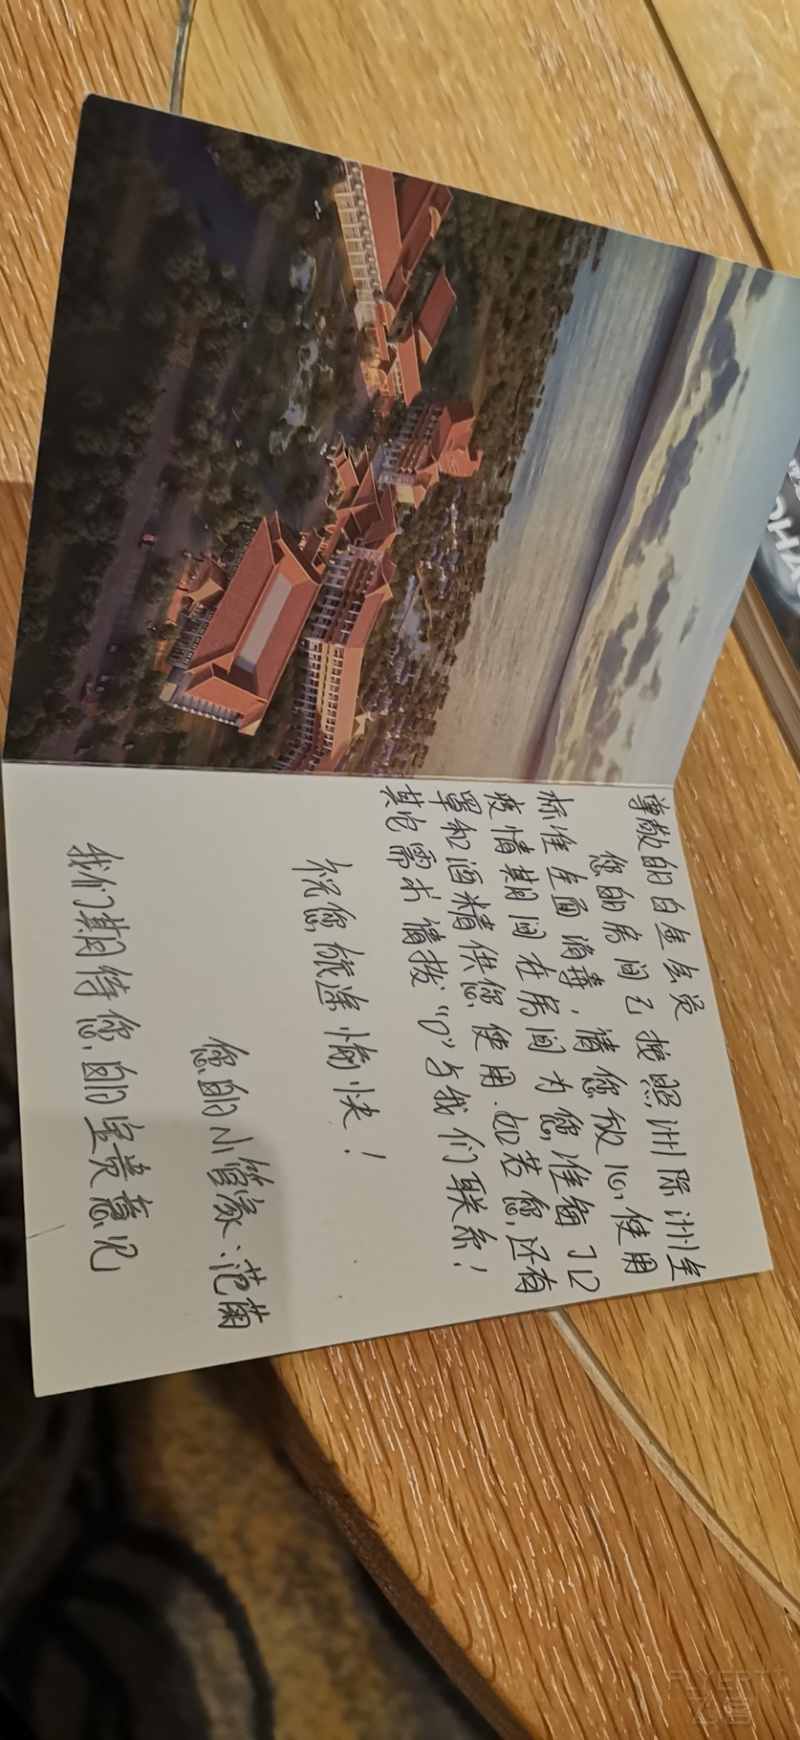 尊敬的白金会员
您的房间已按照洲际洲全
标准全面消毒，请您放心使用
疫情期间在房间为您准备了口
罩和酒精供您使用.如若您还有
其它需求请拨“0”与我们联系！
祝您旅途愉快！
您的小管家：范菌
我们期待您的宝贵意见
FLYERT
飞客